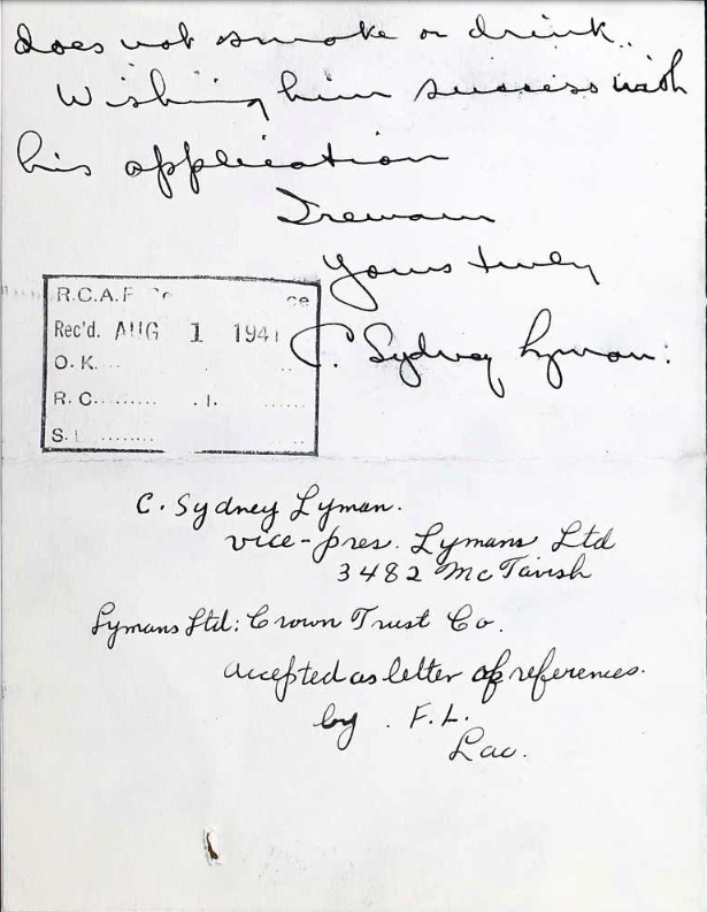 does not smoke or drink..
Wishing him success with
his application
I remain
Yours truly
C. Sydney Lyman.
R.C.A.F
Rec'd. AUG 1 1941
O.K.
R.C.
S.
C. Sydney Lyman.
vice-pres. Lymans Ltd
3482 McTavish
Lymans Ltd: Crown Trust Co.
Accepted as letter of references.
by . F.L.
Lac.